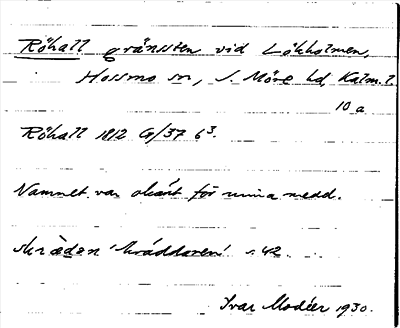 Röhall gränssten vid Lökholmen,
Hossmo sn, S. Möre hd, Kalm. l.
10 a
Röhall 1812 G/37 6³.
Namnet var okänt för mina medd.
skrædən 'skräddaren' s. 42.
Ivar Modéer 1930.